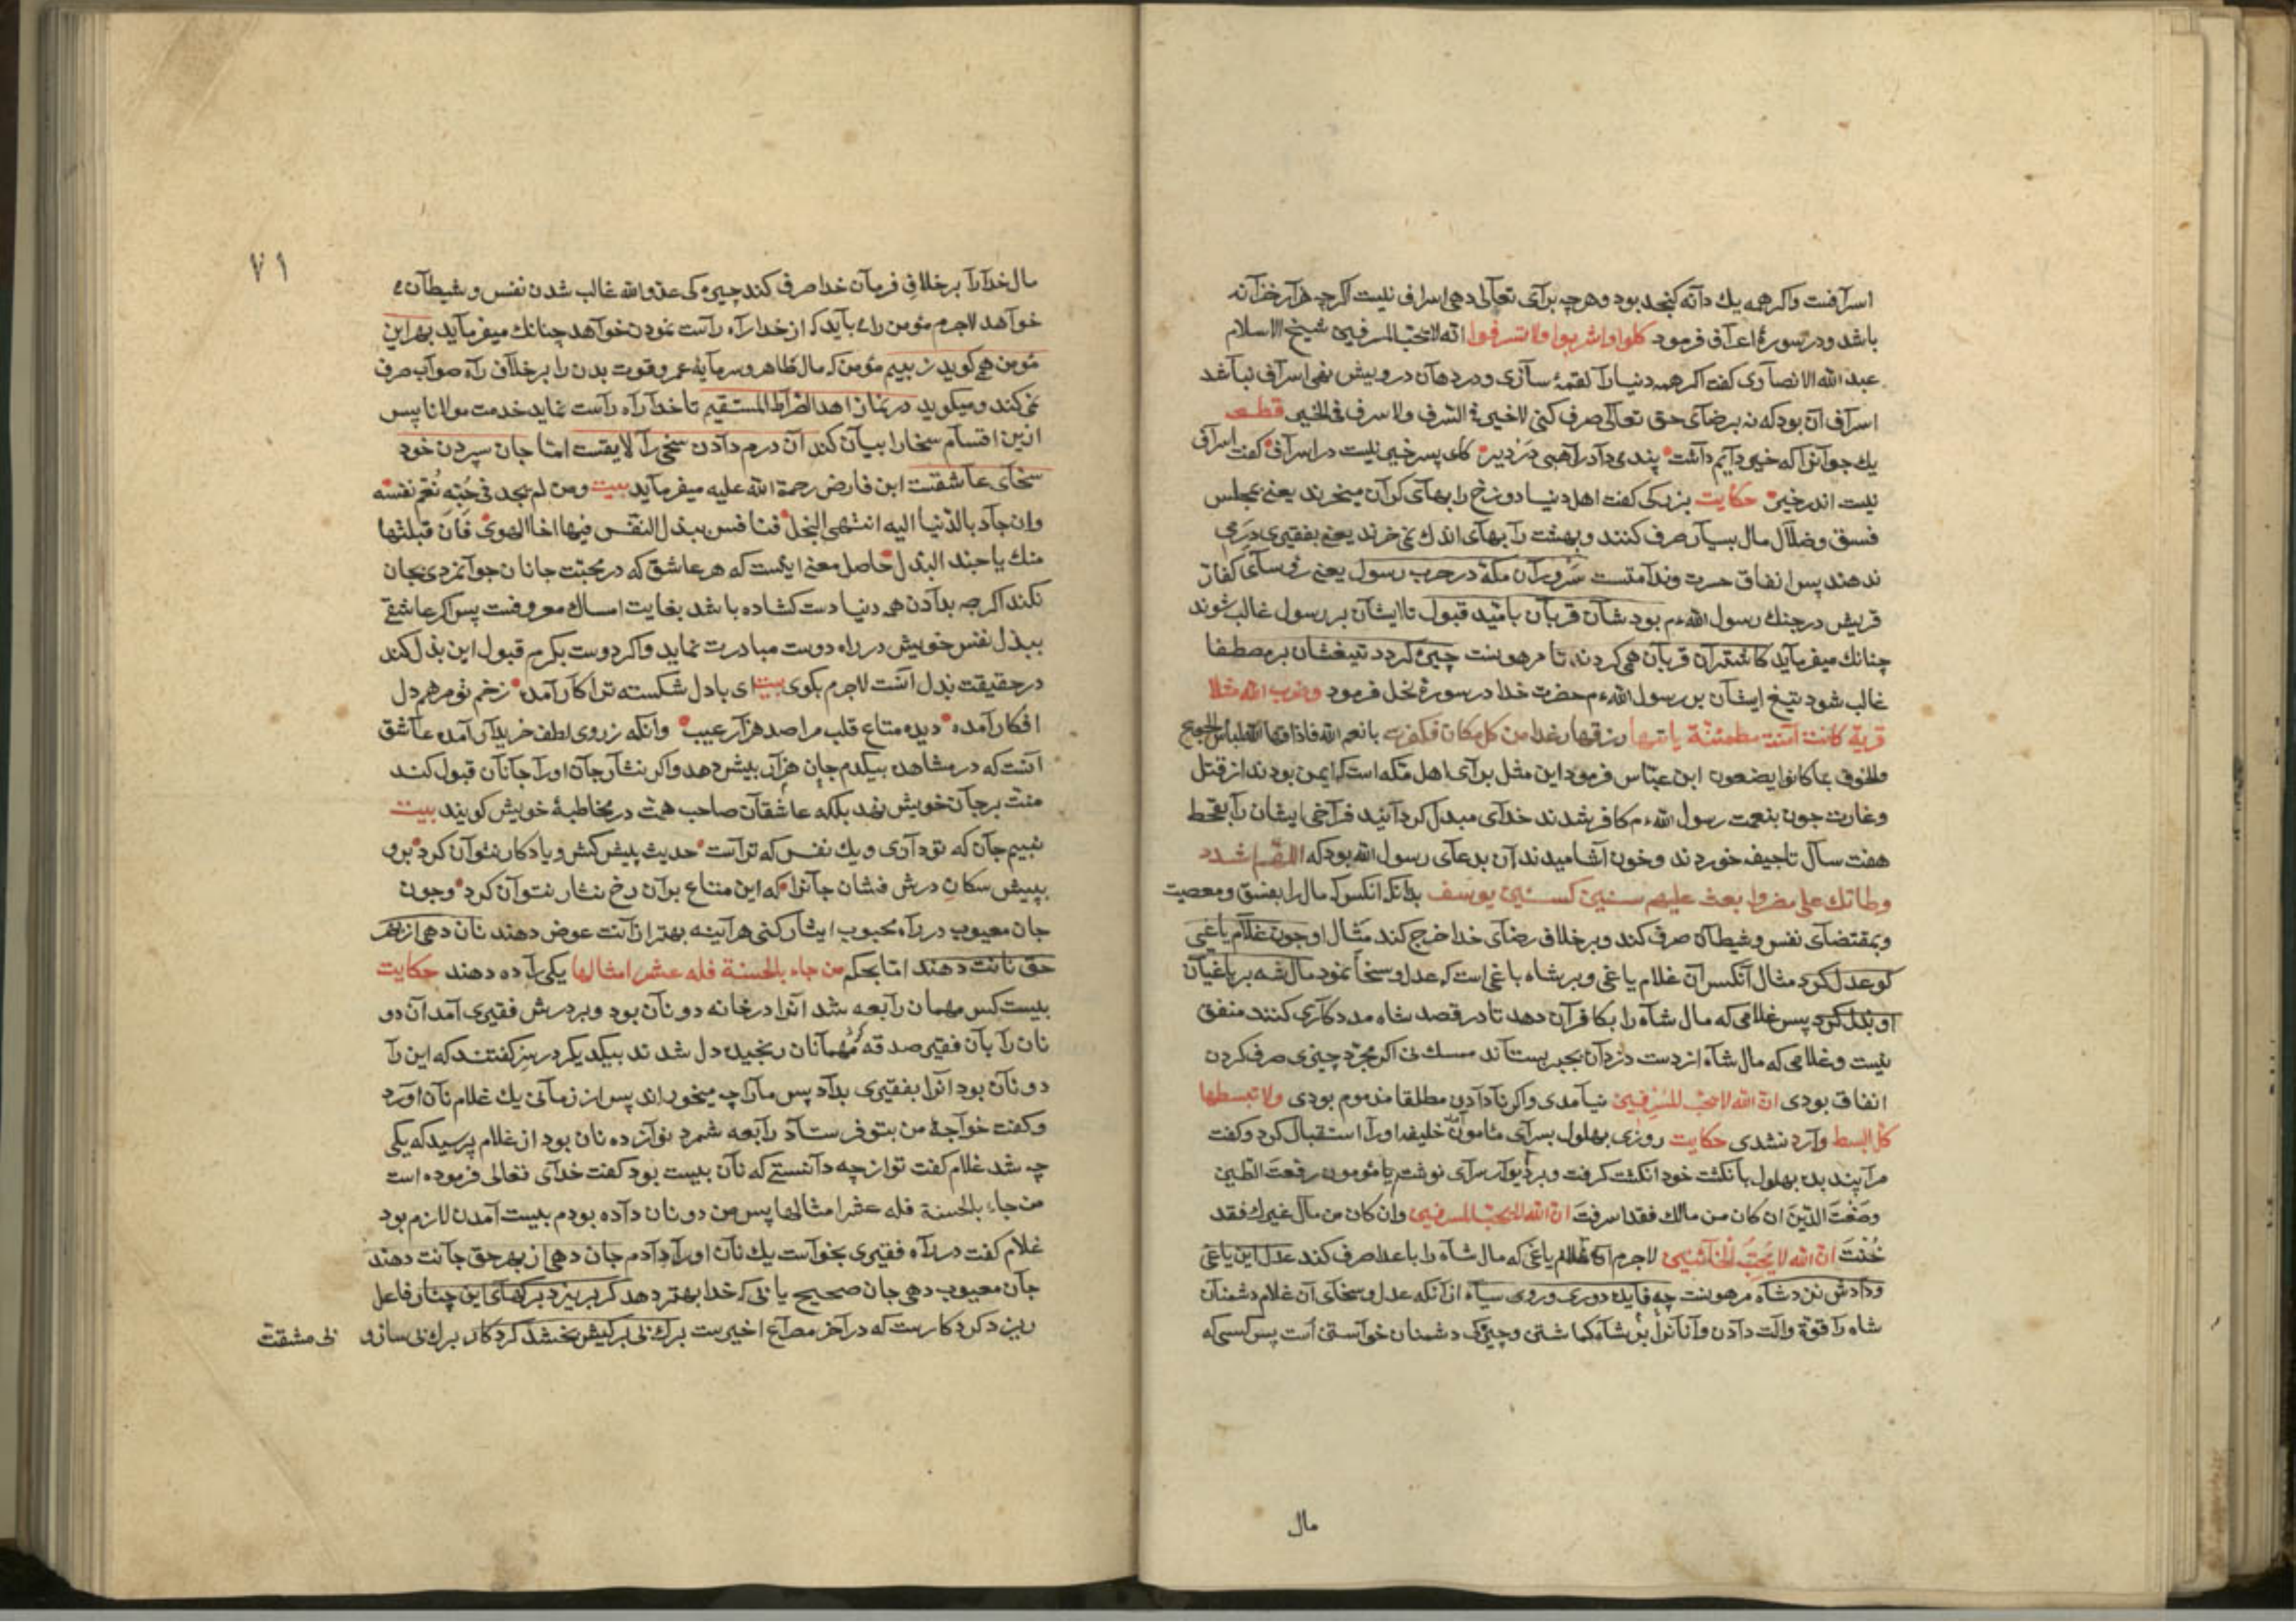 اسرآفست واكر همه يك دآنه كنجد بود وهرچه برآى تعآلى دهى اسراف نيست اكرچه هزآر خزآنه
باشد ودر سورهٔ اعرآف فرمود كلوا واشربوا ولا تسرفوا انه لا يحب المسرفين شيخ الاسلام
عبد الله الانصآرى كفت اكر همه دنيا رآ لقمهٔ سآزى ودر دهآن درويش نهى اسرآف نبآشد
اسرآف آن بود كه نه برضآى حق تعآلى صرف كنى لا خير فى السرف ولا سرف فى الخير قطعه
يك جوآنرا كه خير دآيم دآشت پندى دآد رآهبى در دير كاى پسر خير نيست در اسرآف كفت اسرآف
نيست اندر خير حكايت بزركى كفت اهل دنيا دوزخ را بهآى كرآن ميخرند يعنى بمجلس
فسق وضلآل مال بسيآر صرف كنند وبهشت رآ بهآى اندك نمى خرند يعنى بفقيرى درمى
ندهند پس انفاق حسرت وندآمتست سرورآن مكه در حرب رسول يعنى رؤسآى كفار
قريش در جنك رسول الله عم بود شآن قربآن باميد قبول تا ايشآن بر رسول غالب شوند
چنانك ميفرمآيد كاشترآن قربآن همى كردند تآ مرهوست چيره كردد تيغشان بر مصطفا
غالب شود تيغ ايشآن بر رسول الله عم حضرت خدا در سورهٔ نحل فرمود وضرب الله مثلا
قرية كانت آمنة مطمئنة يآتيها رزقها رغدا من كل مكان فكفرت بانعم الله فاذاقها الله لباس الجوع
والخوف بما كانوا يصنعون ابن عبّاس فرمود اين مثل برآى اهل مكه است كه ايمن بودند از قتل
وغارت چون بنعمت رسول الله عم كافر شدند خدآى مبدل كردآنيد فرآخى ايشان رآ بقحط
هفت سآل تا جيف خوردند وخون آشاميدند آن بدعآى رسول الله بود كه اللهم اشدد
وطاتك على مضر وابعث عليهم سنين كسنين يوسف بدآنكه آنكس كه مال را بفسق ومعصيت
وبمقتضآى نفس وشيطآن صرف كند وبر خلاف رضآى خدا خرج كند مثال او چون غلآم ياغى
كو عدل كرد مثال آنكس آن غلام ياغى وبر شاه باغى است كه عدل وسخآ نمود مال شه بر ياغيآن
او بذل كرد پس غلامى كه مال شآه را بكافرآن دهد تا در قصد شاه مددكآرى كنند منفق
نيست وغلامى كه مال شآه از دست دزدآن بجبر بستآند ممسك نى اكر مجرّد چيزى صرف كردن
انفاق بودى ان الله لا يحب المسرفين نيآمدى واكر نآدآدن مطلقا مذموم بودى ولا تبسطها
كل البسط وآرد نشدى حكايت روزى بهلول بسرآى مامون خليفه اورآ استقبال كرد وكفت
مرآ پند بده بهلول بآنكشت خود انكشت كرفت وبر ديوآر سرآى نوشت يا مؤمون رفعت الطين
وضعت الدّين ان كان من مالك فقد اسرفت ان الله لا يحب المسرفين وان كان من مآل غيرك فقد
خُنْتَ ان الله لا يُحِبُّ الخآئنين لاجرم آن غلام ياغى كه مال شآه را باعدا صرف كند عدل اين ياغى
ودآدش نزد شآه مرهوست چه فآيده دورى وروى سيآه ازآنكه عدل وسخآى آن غلام دشمنآن
شاه رآ قوة وآلت دآدن وآنآنرا بر شآه كما شتى وچيرك دشمنان خوآستن است پس كسى كه
مال
٧١
مال خدآرا بر خلاف فرمآن خدا صرف كند چيرهكى عدو الله غالب شدن نفس وشيطآن ء
خوآهد لاجرم مؤمن راء بآيد كه از خدا رآه رآست نمودن خوآهد چنانك ميفرمآيد بهر اين
مؤمن همى كويد ز بيم مؤمن كه مال ظاهر وسرمآيهٔ عمر وقوت بدن را بر خلآف رآه صوآب صرف
نمى كند وميكويد در نماز اهدنا الصرآط المستقيم تا خدآ رآه رآست نمايد خدمت مولانا پس
ازين اقسآم سخا را بيآن كند آن درم دآدن سخى رآ لايقست امّا جان سپردن خود
سخآى عآشقست ابن فارض رحمة الله عليه ميفرمآيد بيت ومن لم يجد فى حُبّه نُعْمِ نفسه
وان جآد بالدّنيآ اليه انتهى البخل فنافس ببذل النفس فيها اخا الهوى فَآن قبلتها
منك يا حبذا البذل حاصل معنى اينست كه هر عاشق كه در محبّت جانان جوآنمردى بجان
نكند اكرچه بدآدن همه دنيا دست كشاده باشد بغايت امساك معروفست پس اكر عاشقى
ببذل نفس خويش در راه دوست مبادرت نمايد واكر دوست بكرم قبول اين بذل كند
در حقيقت بذل آنست لاجرم بكوى بيت اى با دل شكسته ترا كآر آمده زخم تو مرهم دل
افكار آمده ديده متاع قلب مرا صد هزآر عيب وآنكه ز روى لطف خريدآر آمده عآشق
آنست كه در مشاهده بيكدم جان هزآر بيش دهد واكر نثآر جآن اورآ جآنآن قبول كند
منت بر جآن خويش نهد بلكه عاشقآن صاحب همت در مخاطبهٔ خويش كويند بيت
نيم جآن كه تو دآرى ويك نفس كه ترآست حديث پيش كش ويادكار نتوآن كرد برو
بپيش سكان درش فشان جآنرا كه اين متاع برآن رخ نثار نتوآن كرد وچون
جان معيوب در رآه محبوب ايثآر كنى هرآينه بهتر ازآنت عوض دهند نان دهى از بهر
حق نانت دهند امّا بحكم من جاء بالحسنة فله عشر امثالها يكى رآ ده دهند حكايت
بيست كس مهمان رآبعه شد آنرا در خانه دو نآن بود وبر درش فقيرى آمد آن دو
نان رآ بآن فقير صدقه كرد مهمآنان رنجيده دل شدند بيكديكر در سر كفتند كه اين رآ
دو نآن بود آنرا بفقيرى بدآد پس مارآ چه ميخورآند پس از زمآنى يك غلام نآن آورد
وكفت خوآجهٔ من بتو فرستآد رآبعه شمرد نوآزده نان بود از غلام پرسيد كه يكى
چه شد غلام كفت تو ازچه دآنستى كه نآن بيست بود كفت خدآى تعالى فرموده است
من جاء بالحسنة فله عشر امثالها پس من دو نان دآده بودم بيست آمدن لازم بود
غلآم كفت در رآه فقيرى بخوآست يك نآن اورآ دآدم جان دهى از بهر حق جآنت دهند
جآن معيوب دهى جان صحيح يابى كه خدا بهتر دهد كر بريزد بركهآى اين چنار فاعل
ريزد كردكار ست كه در آخر مصرآع اخيرست برك بى بركيش بخشد كردكار برك بى سازو
بى مشقت